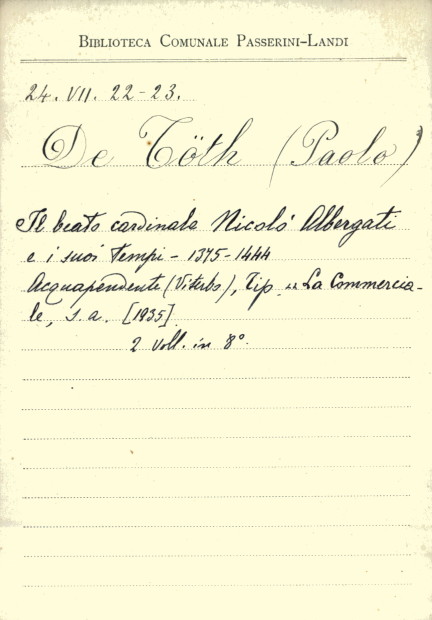 BIBLIOTECA COMUNALE PASSERINI-LANDI
24. VII. 22-23.
De Töth (Paolo)
Il beato cardinale Nicoló Albergati
e i suoi tempi - 1375-1444
Acquapendente (Viterbo), Tip. „ La Commercia-
le, s. a. [1935]
2 voll. in 8°.